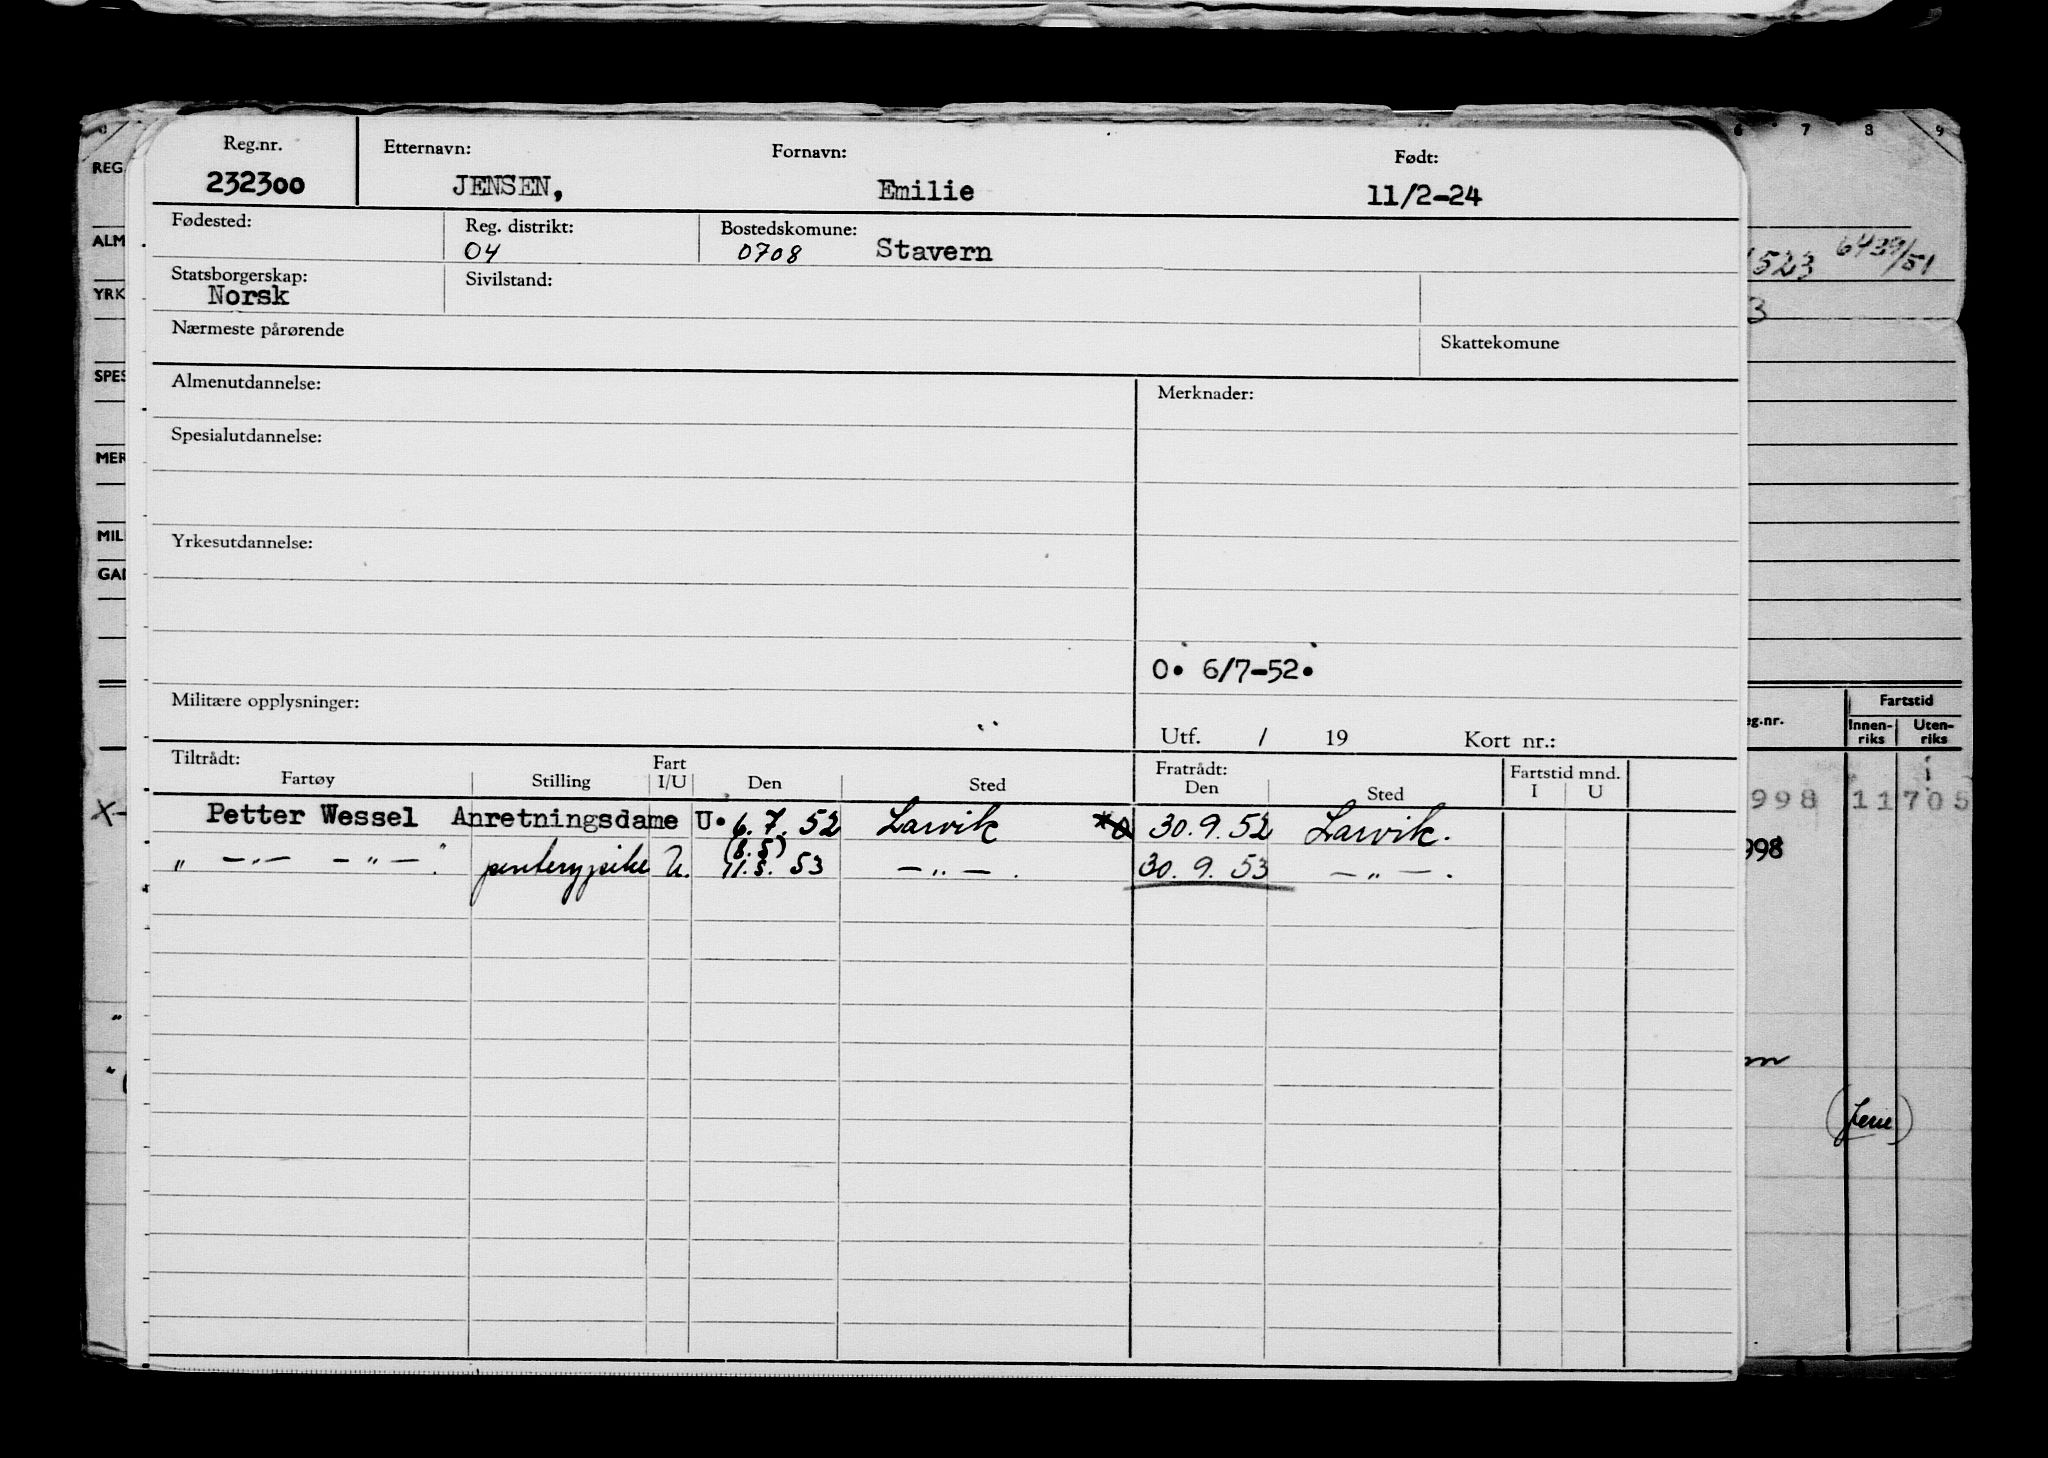 Reg.nr. Etternavn: Fornavn: Født:
232300 JENSEN, Emilie 11/2-24
Fødested: Reg. distrikt: Bostedskomune:
04 0708 Stavern
Statsborgerskap: Sivilstand:
Norsk
Nærmeste pårørende Skattekomune
Almenutdannelse: Merknader:
Spesialutdannelse:
Yrkesutdannelse:
O. 6/7-52.
Militære opplysninger:
Utf. / 19 Kort nr.:
Tiltrådt: Fart Fratrådt: Fartstid mnd.
Fartøy Stilling I/U Den Sted Den Sted I U
Petter Wessel Anretningsdame U. 6.7.52 Larvik 30.9.52 Larvik.
(8.5)
" —"— —"—. U. 11.5.53 —"—. 30.9.53 —"—.
REG.
ALM
YRK
SPES
MER
MIL
6 7 8 9
523 6439/51
3
eg.nr. Fartstid
Innen-riks Uten-riks
998 11705
998
(ferie)